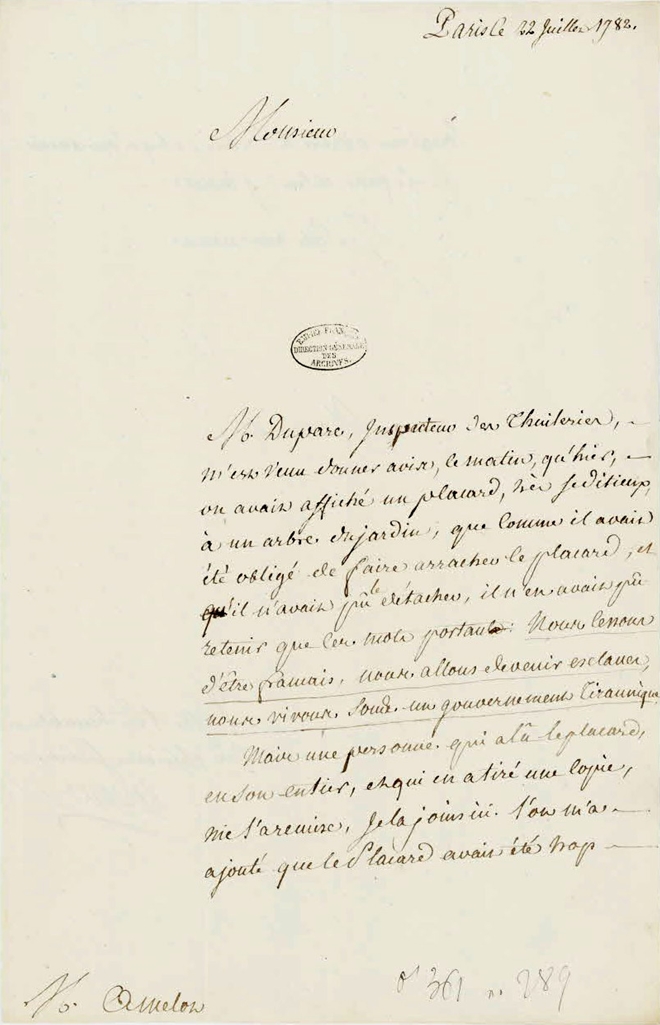 Paris le 22 Juillet 1782.
Monsieur
EMPIRE FRANÇAIS
DIRECTION GÉNÉRALE
DES
ARCHIVES.
M. Duparc, Inspecteur des Thuileries,
m'est venu donner avis, le matin, qu'hier,
on avait affiché un placard, très séditieux,
à un arbre du jardin, que comme il avait
été obligé de faire arracher le placard, et
qu'il n'avait pû le détacher, il n'en avait pû
retenir que les mots portants: Nous cessons
d'être français, nous allons devenir esclaves,
nous vivons sous un gouvernement tirannique
Mais une personne qui a lû le placard,
en son entier, et qui en a tiré une copie,
me l'a remise, Je la joins ici. l'on m'a
ajouté que le Placard avait été trop
M. Amelot
O1 361 n. 289